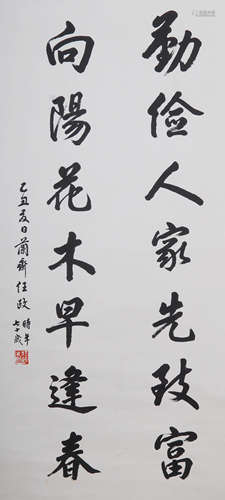 勤俭人家先致富
向陽花木早逢春
乙丑夏日蘭齋任政
時年七十歲